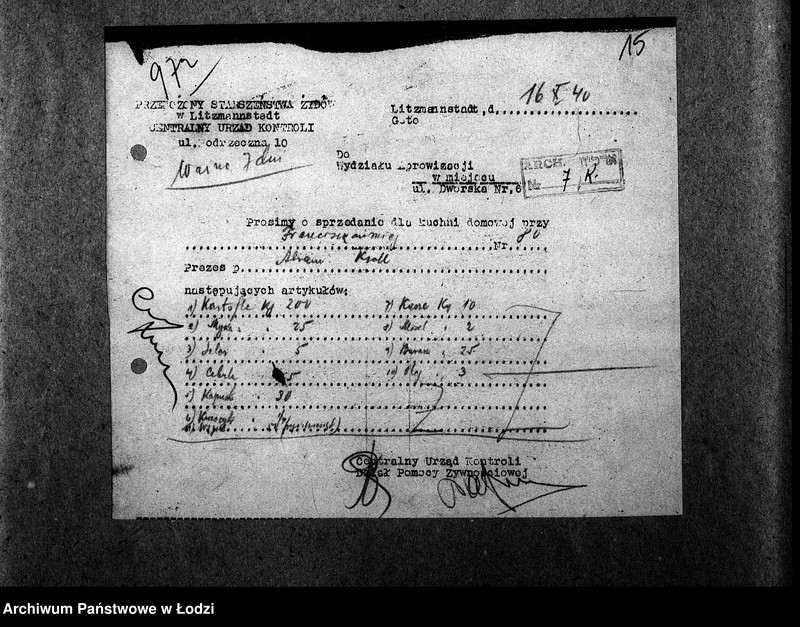 972
15
PRZEŁOŻONY STARSZEŃSTWA ŻYDÓW
w Litzmannstadt
CENTRALNY URZĄD KONTROLI
ul. odrzeczna 10
Litzmannstadt, d. 16 X 40
Geto
Ważne 7 dni
Do
Wydziału Aprowizacji
w miejscu
ul. Dworska Nr. 6
ARCH.
№ 7 K.
Prosimy o sprzedanie dla kuchni domowej przy
Franciszkańskiej Nr. 80
Prezes p. Abram Kroll
następujących artykułów:
1) Kartofle Kg 200
7) Kasze Kg 10
2) Mąka " 25
8) " 2
3) " 5
9) Buraki " 25
4) Cebula " 5
10) Olej " 3
5) Kapusta " 30
6)
Centralny Urząd Kontroli
Dział Pomocy Żywnościowej
Archiwum Państwowe w Łodzi